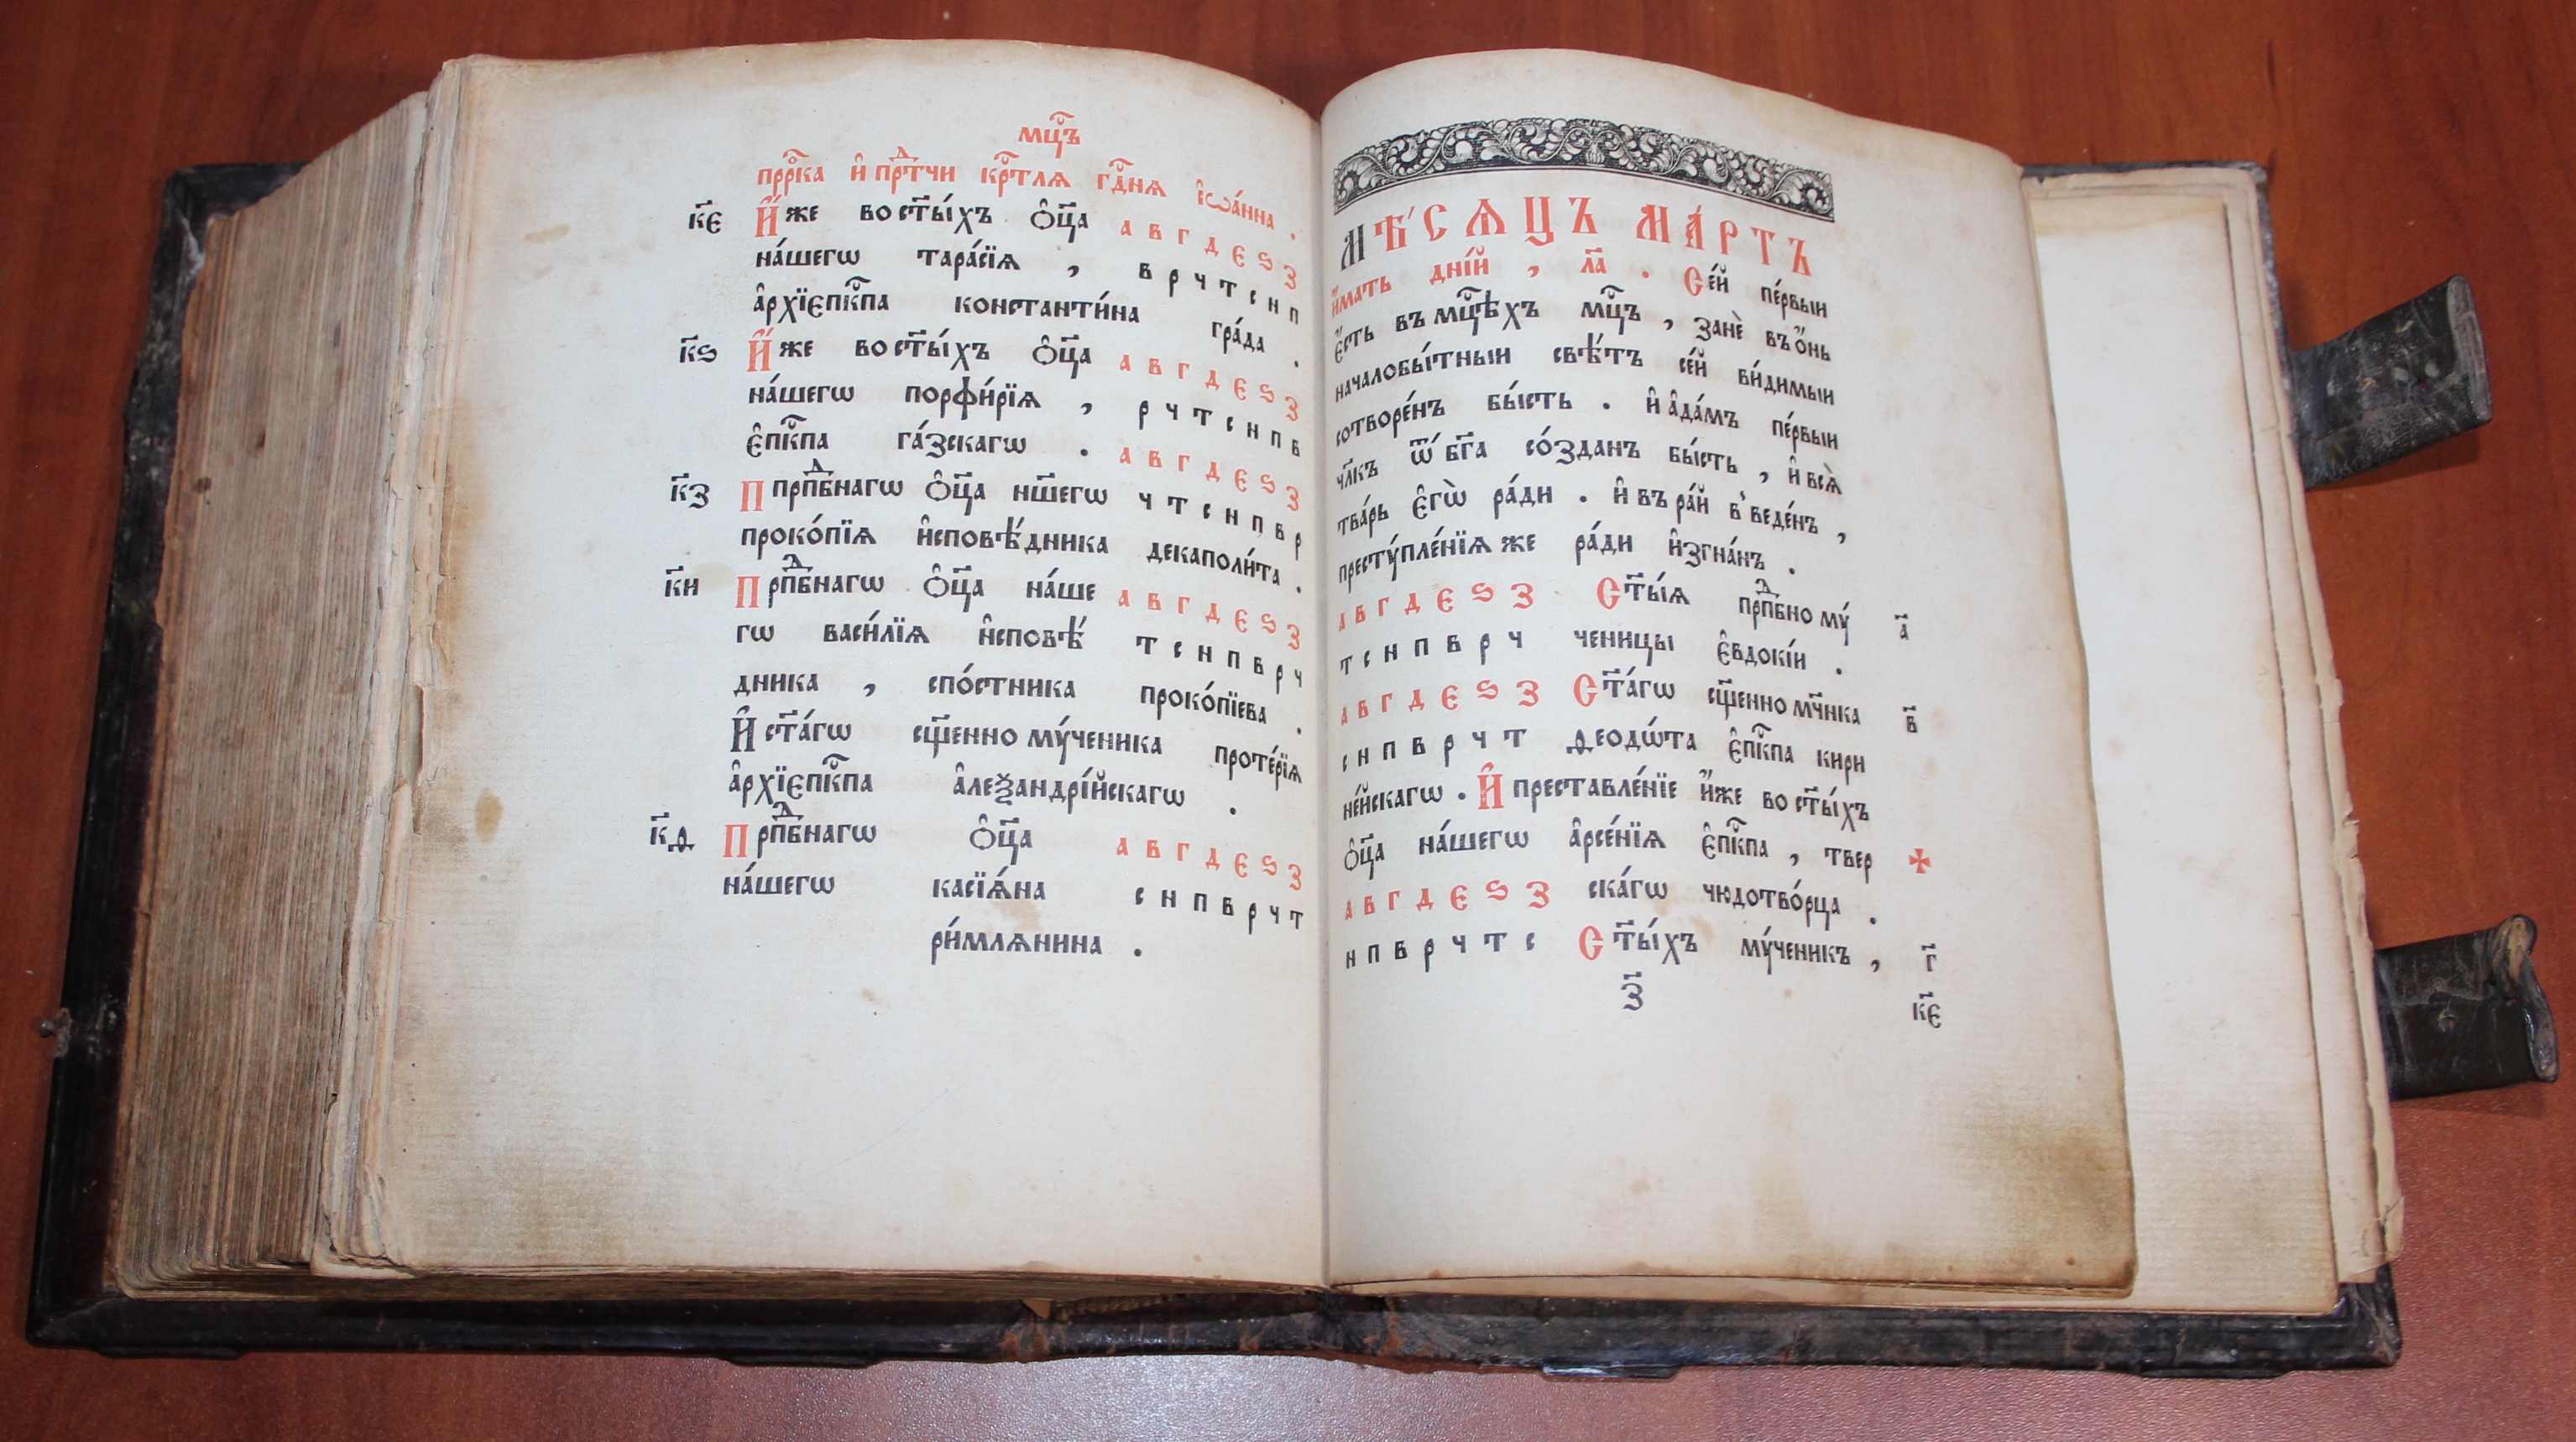 мцⷭ҇ъ
прⷪ҇рка и҆ прⷣтчи крⷭ҇тлѧ гдⷭ҇нѧ і҆ѡа́нна .
к҃є И҆́же во ст҃ы́хъ ѻ҆ц҃а а в г д є ѕ з
на́шегѡ тара́сїѧ , в р ч т с н п
а҆рхїєпⷭ҇кпа константи́на гра́да .
к҃ѕ И҆́же во ст҃ы́хъ ѻ҆ц҃а а в г д є ѕ з
на́шегѡ порфи́рїѧ , р ч т с н п в
є҆пⷭ҇кпа га́зскагѡ . а в г д є ѕ з
к҃з Прпⷣбнагѡ ѻ҆ц҃а нш҃егѡ ч т с н п в р
проко́пїѧ и҆сповѣ́дника декаполи́та .
к҃и Прпⷣбнагѡ ѻ҆ц҃а на́ше а в г д є ѕ з
гѡ васи́лїѧ и҆сповѣ́ т с н п в р ч
дника , спо́стника проко́пїева .
И҆ ст҃а́гѡ сщ҃енно мꙋ́ченика проте́рїѧ
а҆рхїєпⷭ҇кпа а҆леѯандрі́йскагѡ .
к҃ѳ Прпⷣбнагѡ ѻ҆ц҃а а в г д є ѕ з
на́шегѡ касїѧ́на с н п в р ч т
ри́млѧнина .
МѢ́СѦЦЪ МА́РТЪ
и҆́мать дні́й , л҃а . Се́й пе́рвыи
є҆́сть въ мцⷭ҇ѣхъ мцⷭ҇ъ , занѐ въ ѻ҆́нь
началобы́тныи свѣ́тъ се́й ви́димыи
сотворе́нъ бы́сть . и҆ а҆да́мъ пе́рвыи
чл҃къ ѿ бг҃а со́зданъ бы́сть , и҆ всѧ̀
тва́рь є҆гѡ̀ ра́ди . и҆ въ ра́й в̾веде́нъ ,
престꙋпле́нїѧ же ра́ди и҆згна́нъ .
а в г д є ѕ з Ст҃ы́ѧ прпⷣбно мꙋ́ а҃
т с н п в р ч ченицы є҆вдокі́и .
а в г д є ѕ з Ст҃а́гѡ сщ҃енно мч҃нка в҃
с н п в р ч т ѳеодѡ́та є҆пⷭ҇кпа кири
не́йскагѡ . И҆ преставле́нїе и҆́же во ст҃ы́хъ
ѻ҆ц҃а на́шегѡ а҆рсе́нїѧ є҆пⷭ҇кпа , твер
а в г д є ѕ з ска́гѡ чюдотво́рца .
н п в р ч т с Ст҃ы́хъ мꙋ́ченикъ , г҃
ѿ
к҃є